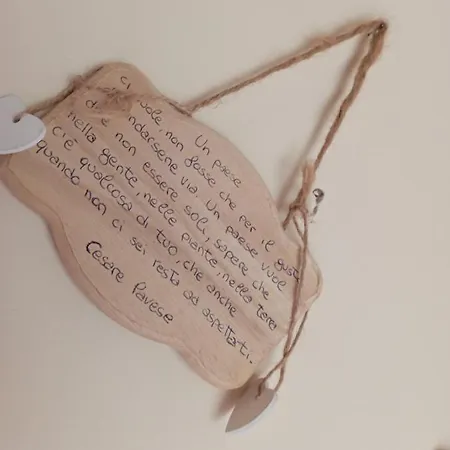 Un paese
ci vuole, non fosse che per il gusto
di andarsene via. Un paese vuol
dire non essere soli, sapere che
nella gente, nelle piante, nella terra
c'è qualcosa di tuo, che anche
quando non ci sei resta ad aspettarti.
Cesare Pavese